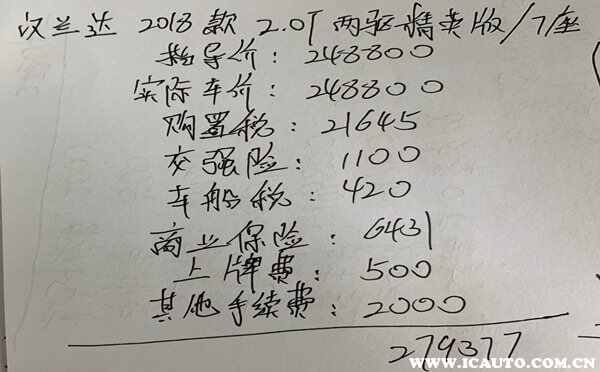 汉兰达 2018款 2.0T 两驱精英版/7座
指导价：248800
实际车价：248800
购置税：21645
交强险：1100
车船税：420
商业保险：6431
上牌费：500
其他手续费：2000
279377
WWW.ICAUTO.COM.CN